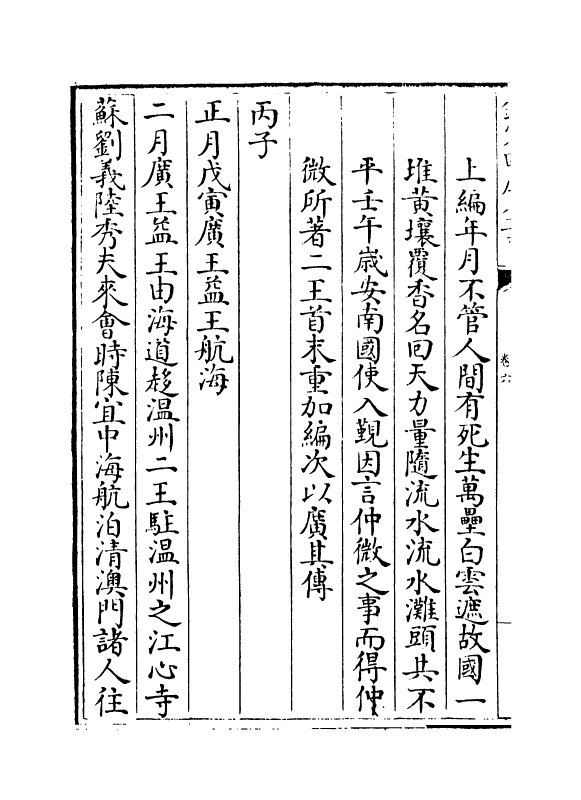 卷六
上編年月不管人間有死生萬壘白雲遮故國一
堆黄壤覆香名回天力量隨流水流水灘頭共不
平壬午嵗安南國使入覲因言仲微之事而得仲
微所著二王首末重加編次以廣其傳
丙子
正月戊寅廣王益王航海
二月廣王益王由海道趍温州二王駐温州之江心寺
蘇劉義陸秀夫來會時陳宜中海航泊清澳門諸人往